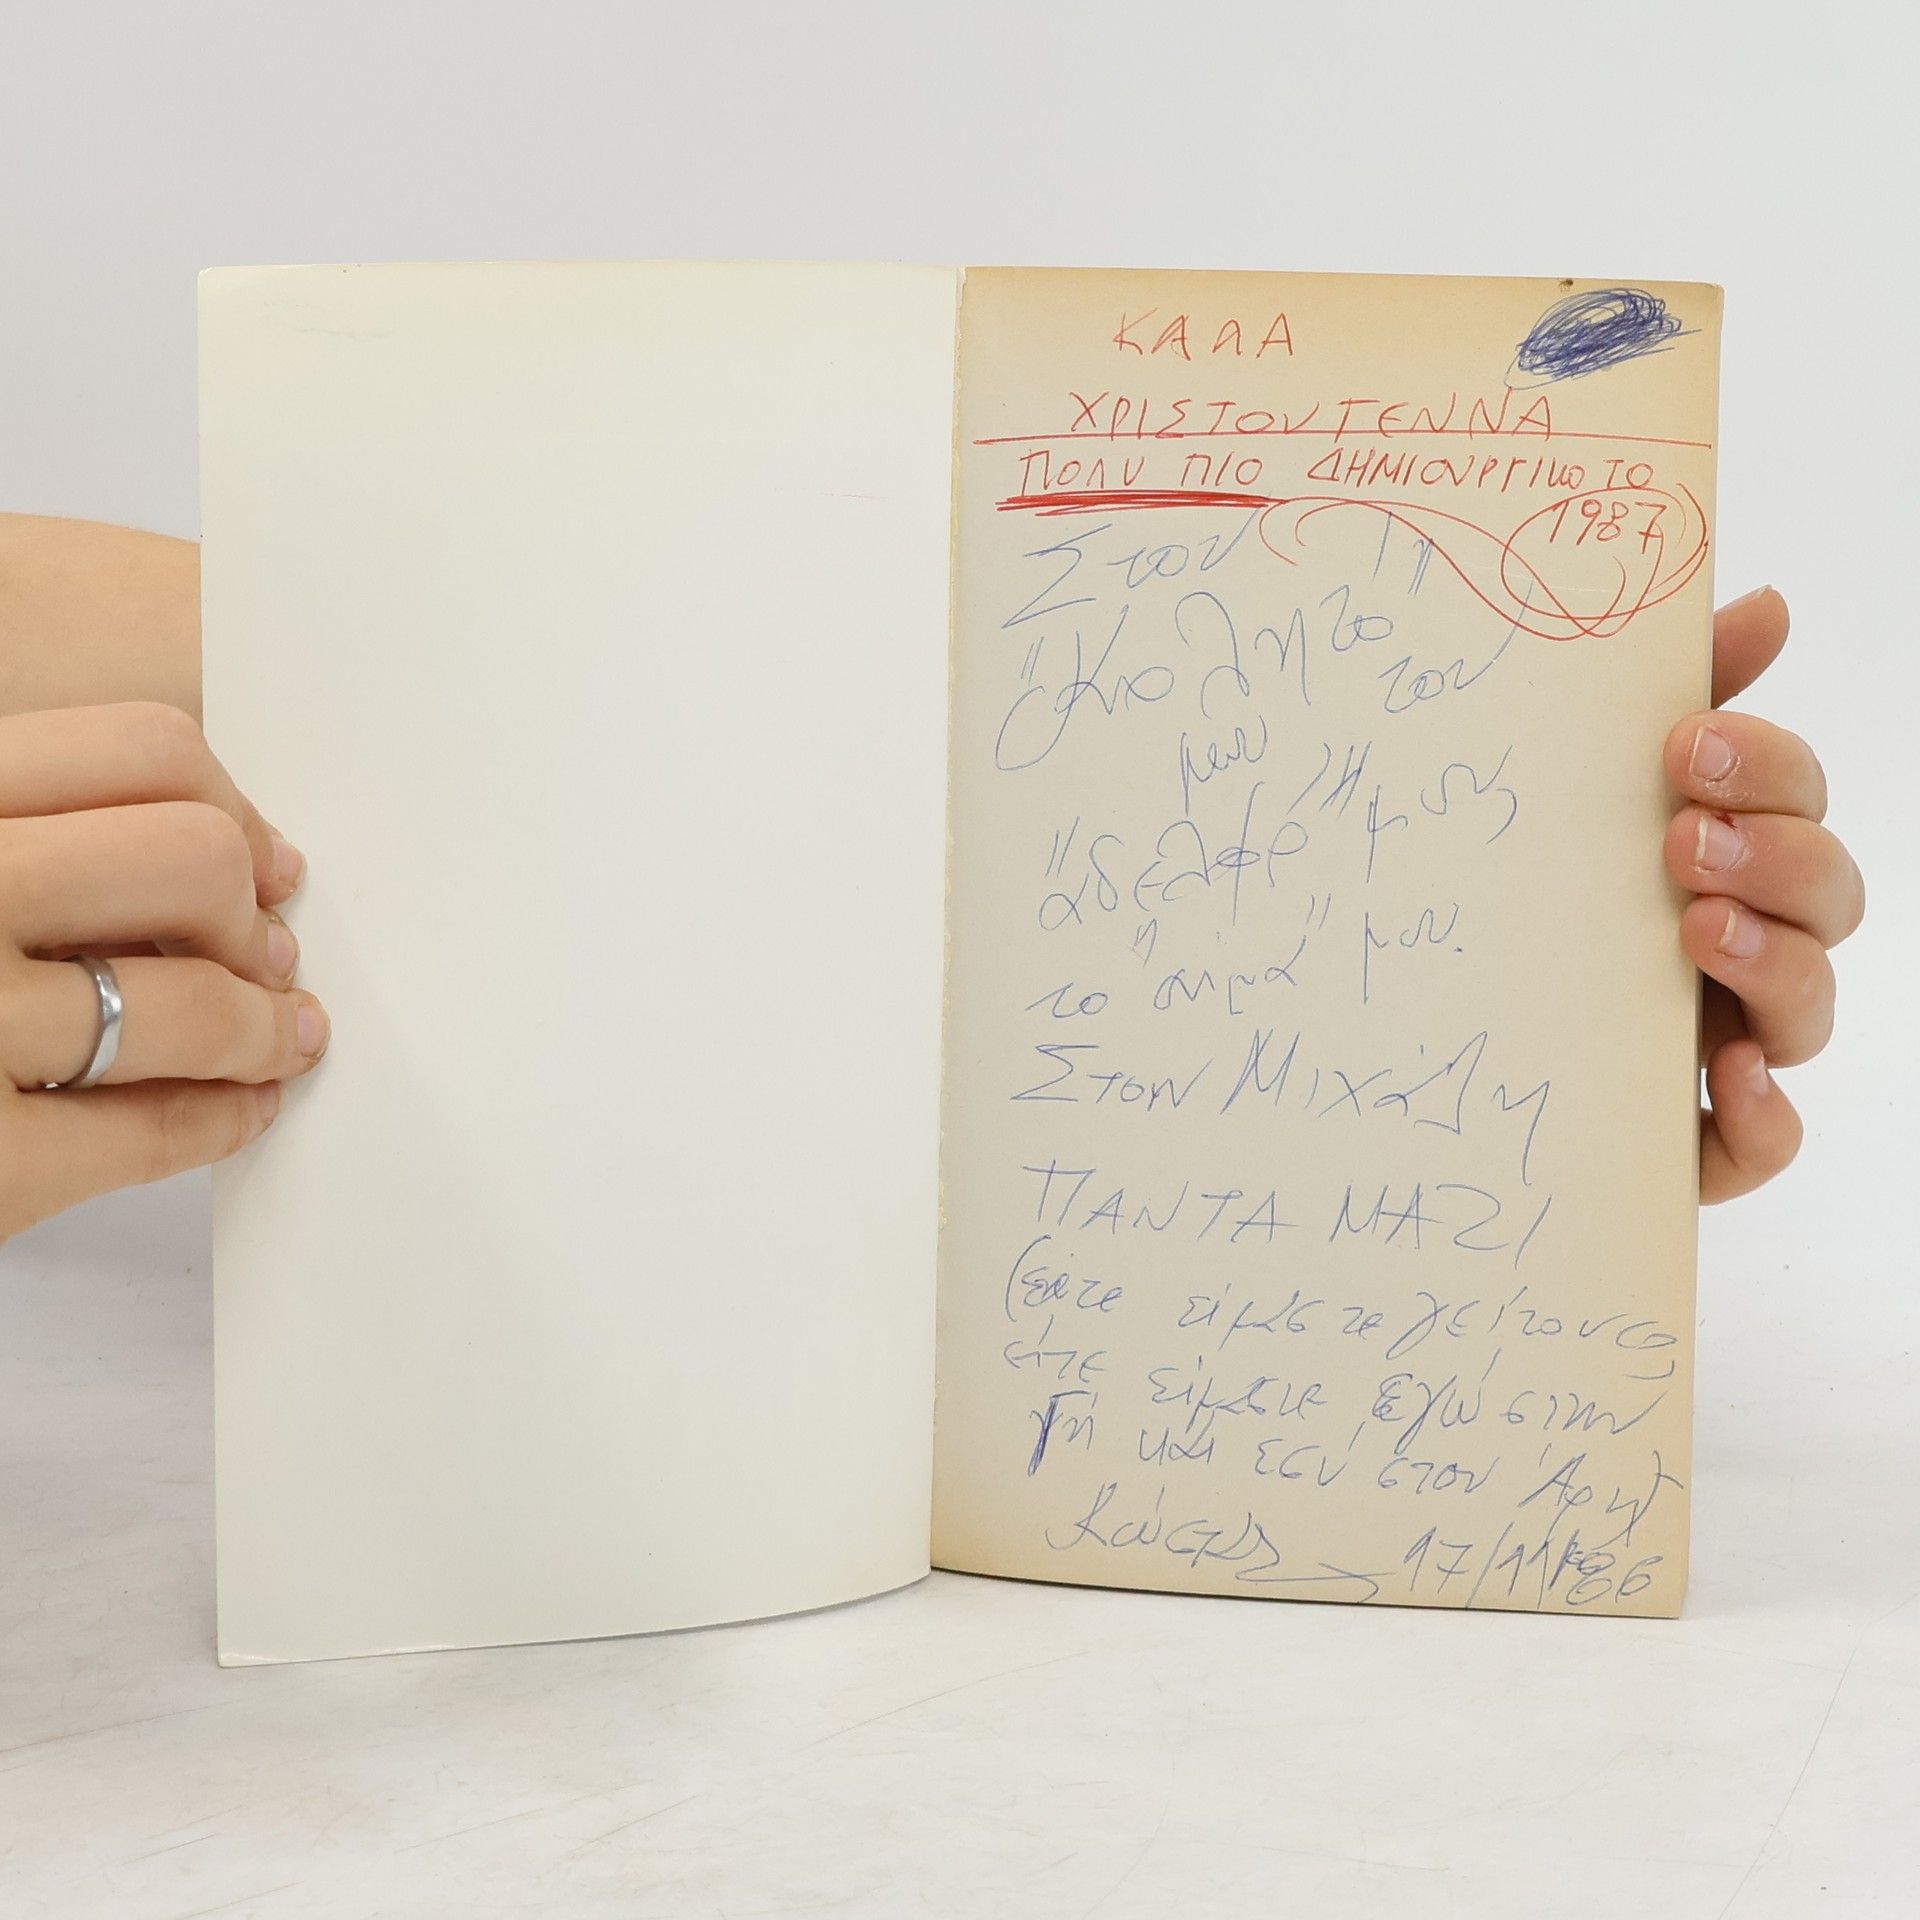 ΚΑΛΑ
ΧΡΙΣΤΟΥΓΕΝΝΑ
ΠΟΛΥ ΠΙΟ ΔΗΜΙΟΥΡΓΙΚΟ ΤΟ
1987
Στον
"Κολλητό"
μου τον
"αδελφό" μου
το "αίμα" μου.
Στον Μιχάλη
ΠΑΝΤΑ ΜΑΖΙ
(είτε είμαστε γείτονες,
είτε είμαστε εγώ στην
Γή και εσύ στον Άρη)
Κώστας 17/11/86